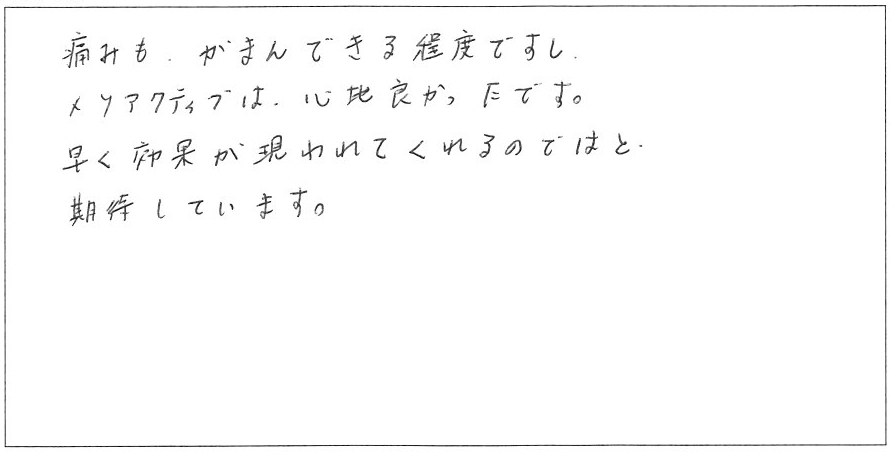 痛みも、がまんできる程度ですし、
メソアクティブは、心地良かったです。
早く効果が現われてくれるのではと、
期待しています。